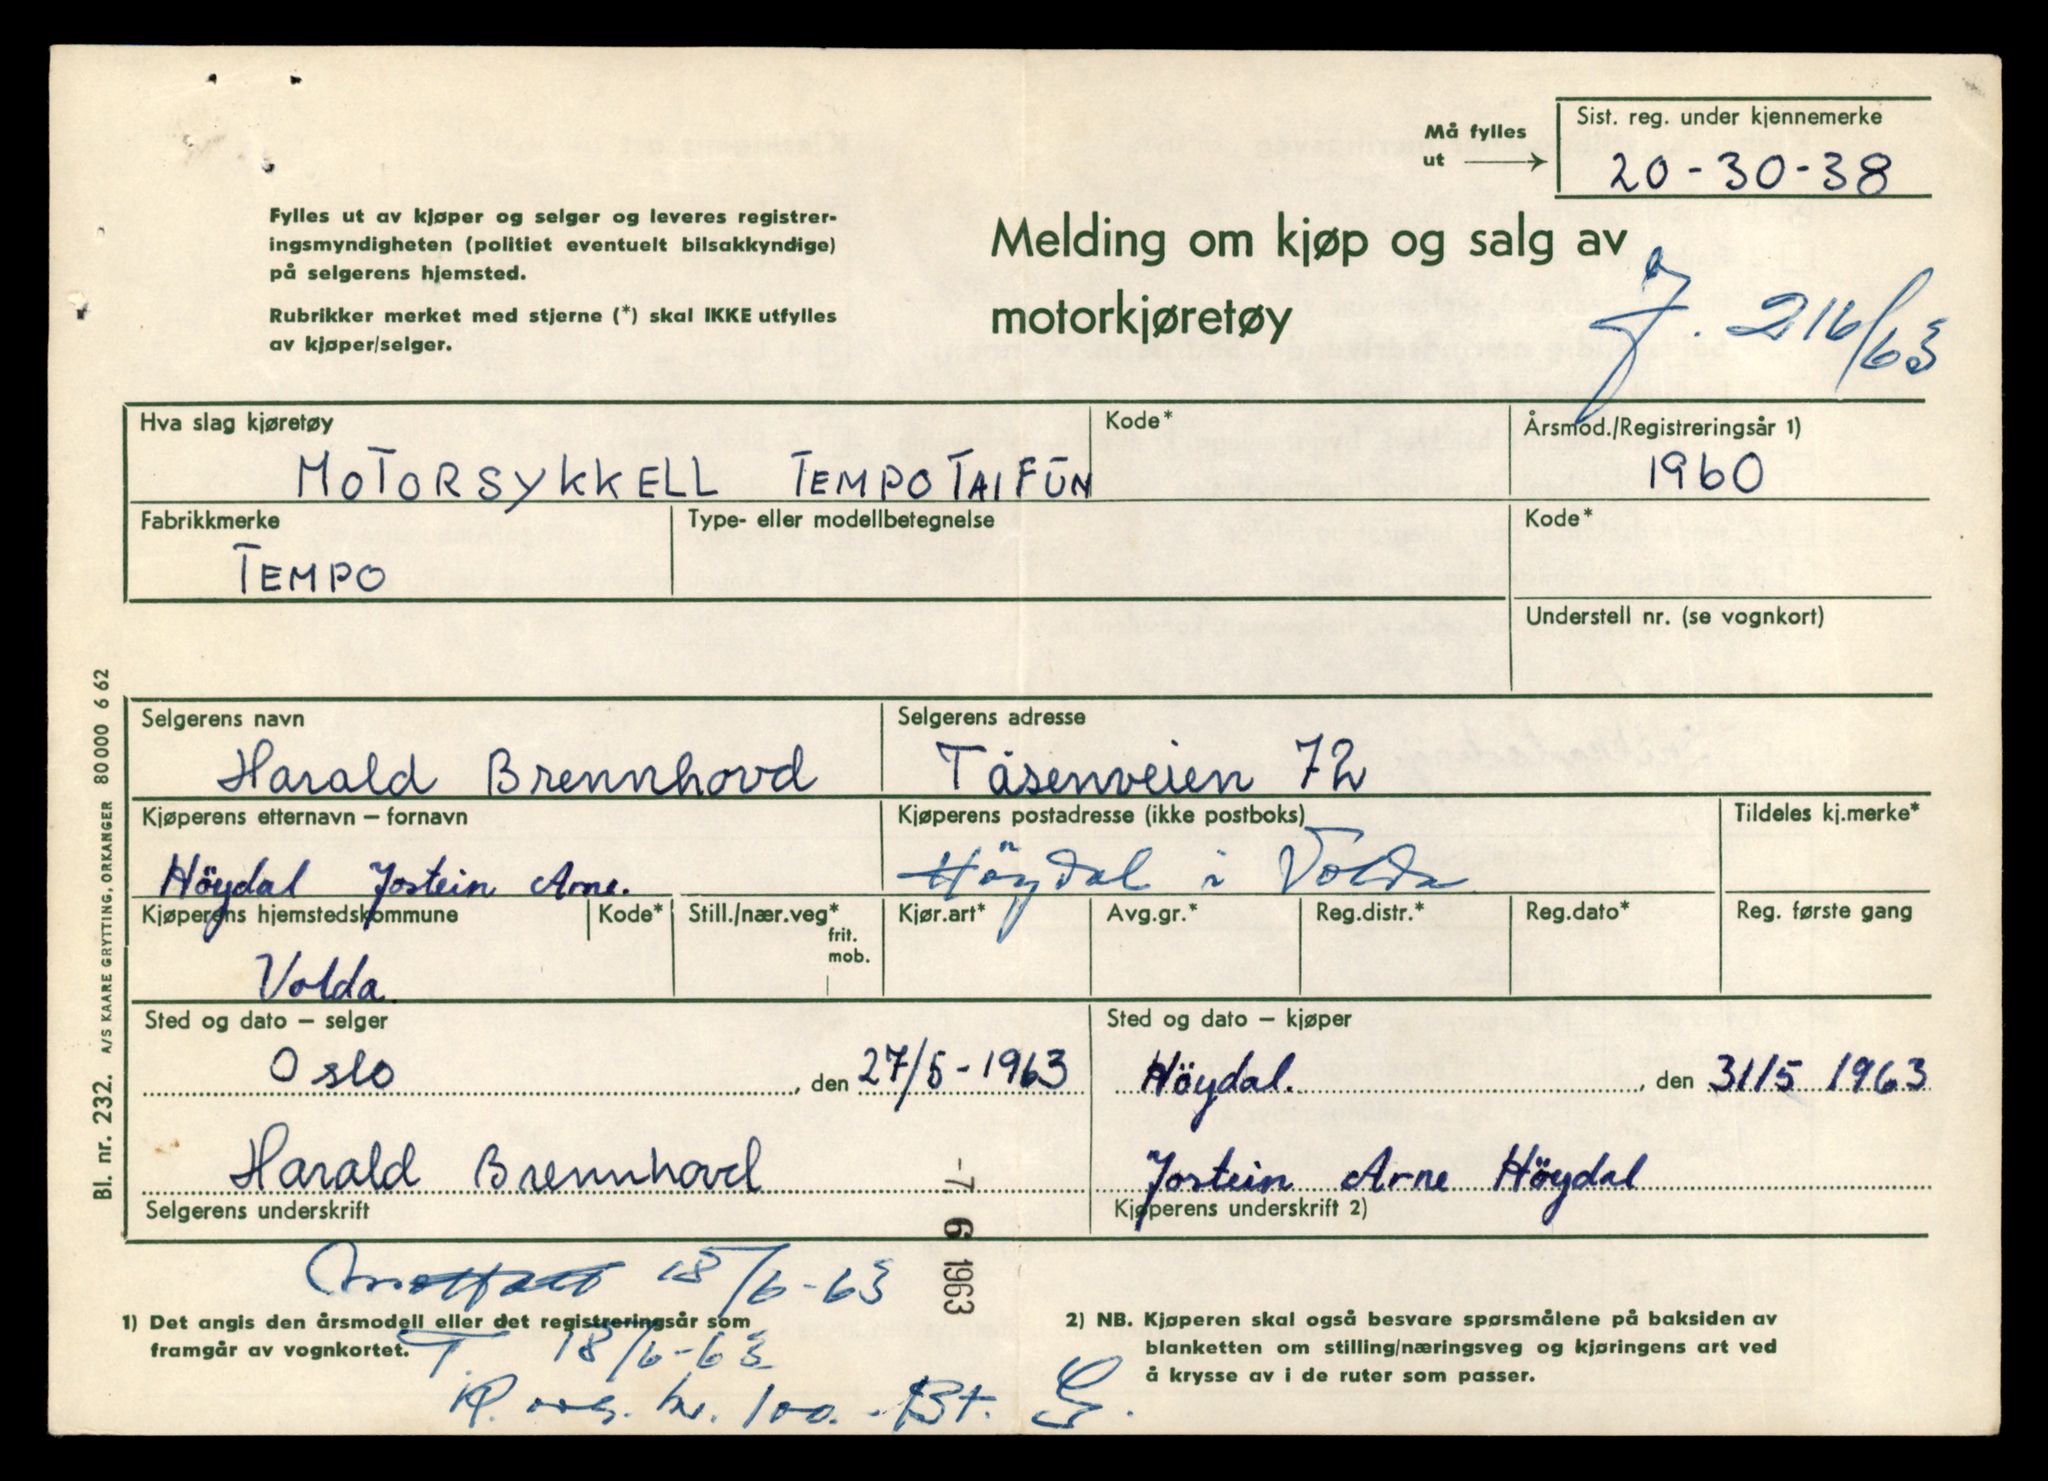 Sist. reg. under kjennemerke
Må fylles
ut
20-30-38
Fylles ut av kjøper og selger og leveres registrer-
ingsmyndigheten (politiet eventuelt bilsakkyndige)
på selgerens hjemsted.
Rubrikker merket med stjerne (*) skal IKKE utfylles
av kjøper/selger.
Melding om kjøp og salg av
motorkjøretøy
J. 216/63
Hva slag kjøretøy
Kode*
Årsmod./Registreringsår 1)
MOTORSYKKELL TEMPO TAIFŪN
1960
Fabrikkmerke
Type- eller modellbetegnelse
Kode*
TEMPO
Understell nr. (se vognkort)
Selgerens navn
Selgerens adresse
Harald Brennhovd
Tåsenveien 72
Kjøperens etternavn – fornavn
Kjøperens postadresse (ikke postboks)
Tildeles kj.merke*
Höydal Jostein Arne.
Höydal i Volda
Kjøperens hjemstedskommune
Kode*
Still./nær.veg*
frit.
mob.
Kjør.art*
Avg.gr.*
Reg.distr.*
Reg.dato*
Reg. første gang
Volda
Sted og dato – selger
Sted og dato – kjøper
Oslo, den 27/5-1963
Höydal., den 31/5 1963
Harald Brennhovd
Jostein Arne Höydal
Selgerens underskrift
Kjøperens underskrift 2)
-7. 6 1963
Mottatt 18/6-63
1) Det angis den årsmodell eller det registreringsår som
framgår av vognkortet.
T. 18/6-63
kr. 100.
2) NB. Kjøperen skal også besvare spørsmålene på baksiden av
blanketten om stilling/næringsveg og kjøringens art ved
å krysse av i de ruter som passer.
Bl. nr. 232. A/S KAARE GRYTTING, ORKANGER 80000 6 62